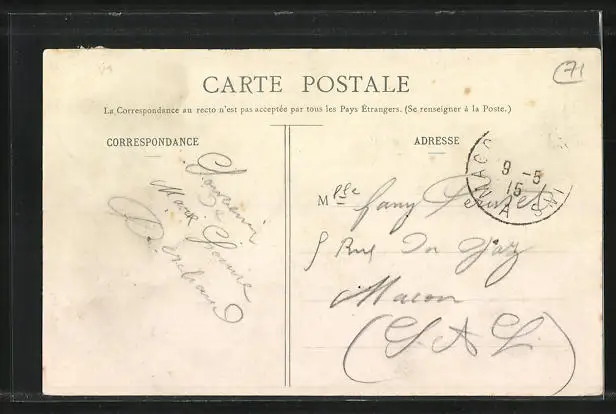 71
CARTE POSTALE
La Correspondance au recto n'est pas acceptée par tous les Pays Étrangers. (Se renseigner à la Poste.)
CORRESPONDANCE
ADRESSE
Souvenir
de
Marie
MACON
9 - 5
15
Mlle Fany
5 Rue du Gaz
Macon
(S A L)